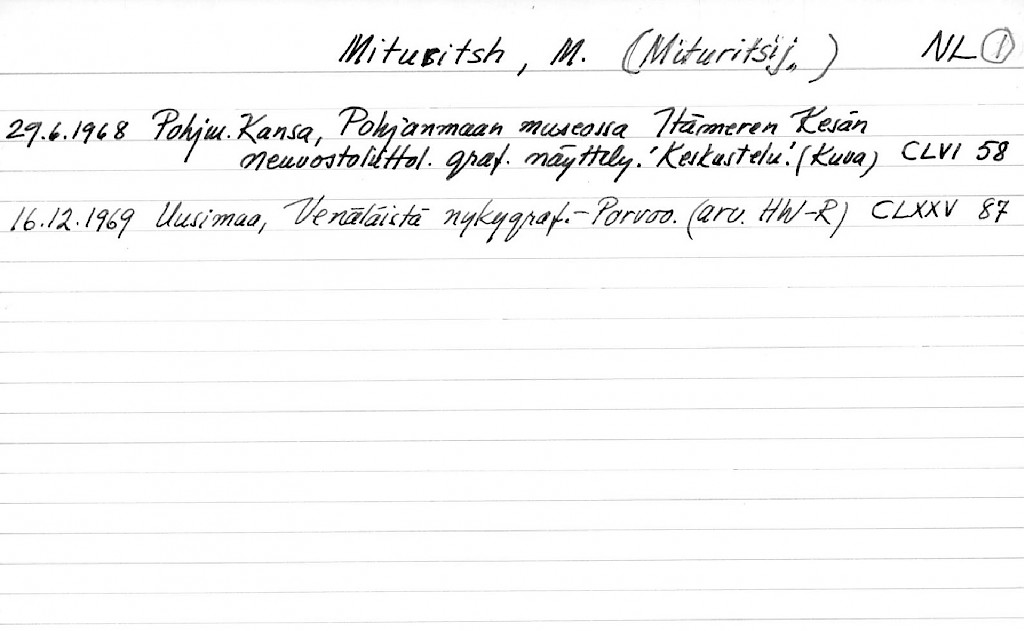 Mituritsh, M. (Mituritsij.) NL 1
29.6.1968 Pohjm. Kansa, Pohjanmaan museossa Itämeren Kesän
neuvostoliittol. graf. näyttely. 'Keskustelu'. (Kuva) CLVI 58
16.12.1969 Uusimaa, Venäläistä nykygraf.- Porvoo. (arv. HW-R) CLXXV 87